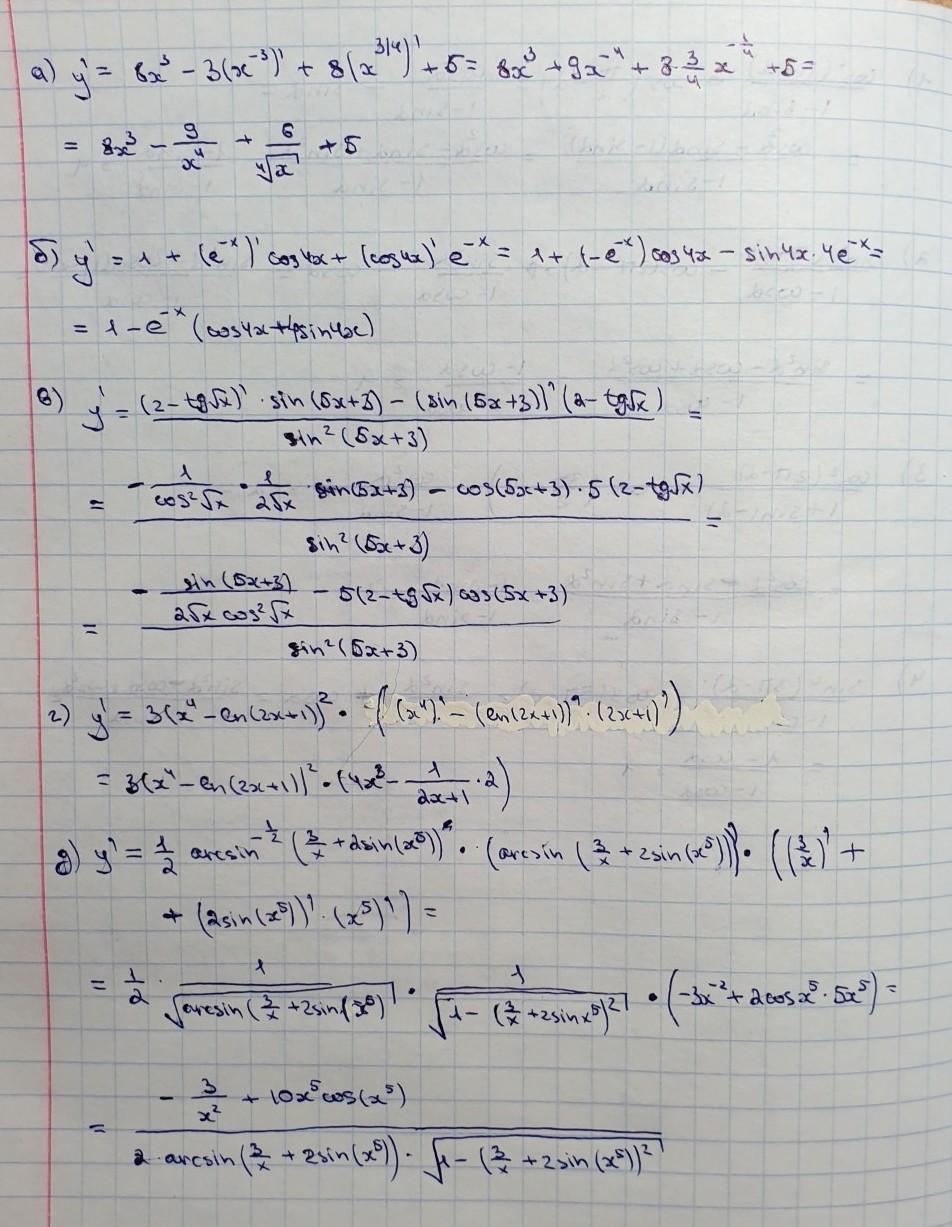 а) y' = 8x³ - 3(x⁻³)' + 8(x^{3/4})' + 5 = 8x³ + 9x⁻⁴ + 8·3/4 x^{-1/4} + 5 =
= 8x³ - 9/x⁴ + 6/⁴√x + 5
б) y' = 1 + (e⁻ˣ)' cos4x + (cos4x)' e⁻ˣ = 1 + (-e⁻ˣ) cos4x - sin4x · 4e⁻ˣ =
= 1 - e⁻ˣ (cos4x + 4sin4x)
в) y' = ((2 - tg√x)' · sin(5x+3) - (sin(5x+3))' (2 - tg√x)) / sin²(5x+3) =
= (- 1/cos²√x · 1/2√x · sin(5x+3) - cos(5x+3) · 5(2 - tg√x)) / sin²(5x+3) =
= (- sin(5x+3)/2√x cos²√x - 5(2 - tg√x) cos(5x+3)) / sin²(5x+3)
г) y' = 3(x⁴ - ln(2x+1))² · ((x⁴)' - (ln(2x+1))' · (2x+1)')
= 3(x⁴ - ln(2x+1))² · (4x³ - 1/2x+1 · 2)
д) y' = 1/2 arcsin^{-1/2} (3/x + 2sin(x⁵))' · (arcsin (3/x + 2sin(x⁵)))' · ((3/x)' +
+ (2sin(x⁵))' · (x⁵)') =
= 1/2 · 1/√arcsin(3/x + 2sin(x⁵)) · 1/√1 - (3/x + 2sinx⁵)² · (-3x⁻² + 2cosx⁵ · 5x⁵) =
= (- 3/x² + 10x⁵cos(x⁵)) / 2 · arcsin(3/x + 2sin(x⁵)) · √1 - (3/x + 2sin(x⁵))²